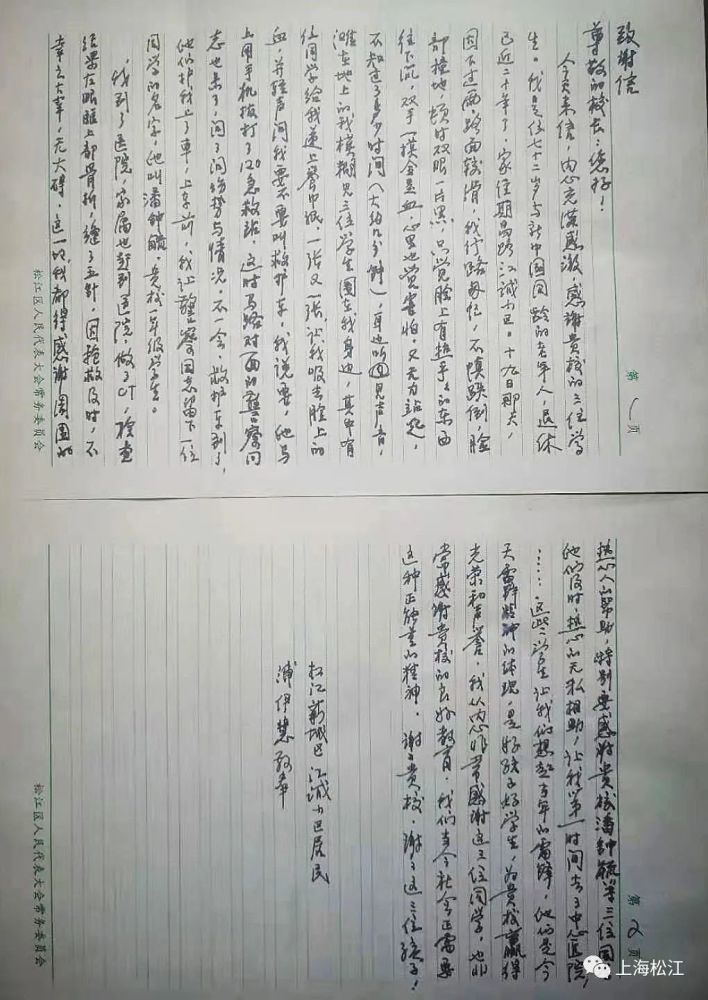 致谢信
尊敬的校长:您好!
今天来信,内心充满感激,感谢贵校的三位学
生。我是位七十二岁与新中国同龄的老年人,退休
已近二十年了,家住期昌路江诚小区。十九日那天,
因下过雨,路面较滑,我行路匆忙,不慎跌倒,脸
部撞地,顿时双眼一片黑,只觉脸上有热乎乎的东西
往下流,双手一摸全是血,心里也觉害怕,又无力站起,
不知过了多少时间(大约几分钟),耳边听见声音,
瘫在地上的我模糊见三位学生围在我身边,其中有
位同学给我递上餐巾纸,一张又一张,让我吸去脸上的
血,并轻声问我要不要叫救护车,我说要,他马
上用手机拨打了120急救站,这时马路对面的警察同
志也来了,问了问伤势与情况,不一会,救护车到了,
他们护我上了车,上车前,我让警察同志留下一位
同学的名字,他叫潘钟毓,贵校一年级学生。
我到了医院,家属也赶到医院,做了CT,检查
结果左眼眶上部骨折,缝了五针,因抢救及时,不
幸之大幸,无大碍,这一切,我都得感谢周围的
松江区人民代表大会常务委员会
第1页
热心人的帮助,特别要感谢贵校潘钟毓等三位同
他们及时,热心的无私相助,让我第一时间去了中心医院,
……这些学生让我们想起了当年的雷锋,他们是今
天雷锋精神的体现,是好孩子好学生,为贵校赢得
光荣和声誉,我从内心非常感谢这三位同学,也非
常感谢贵校的良好教育,我们当今社会正需要
这种正能量的精神,谢谢贵校,谢谢这三位孩子!
松江新城区江诚小区居民
浦伊慧敬奉
松江区人民代表大会常务委员会
第2页
上海松江